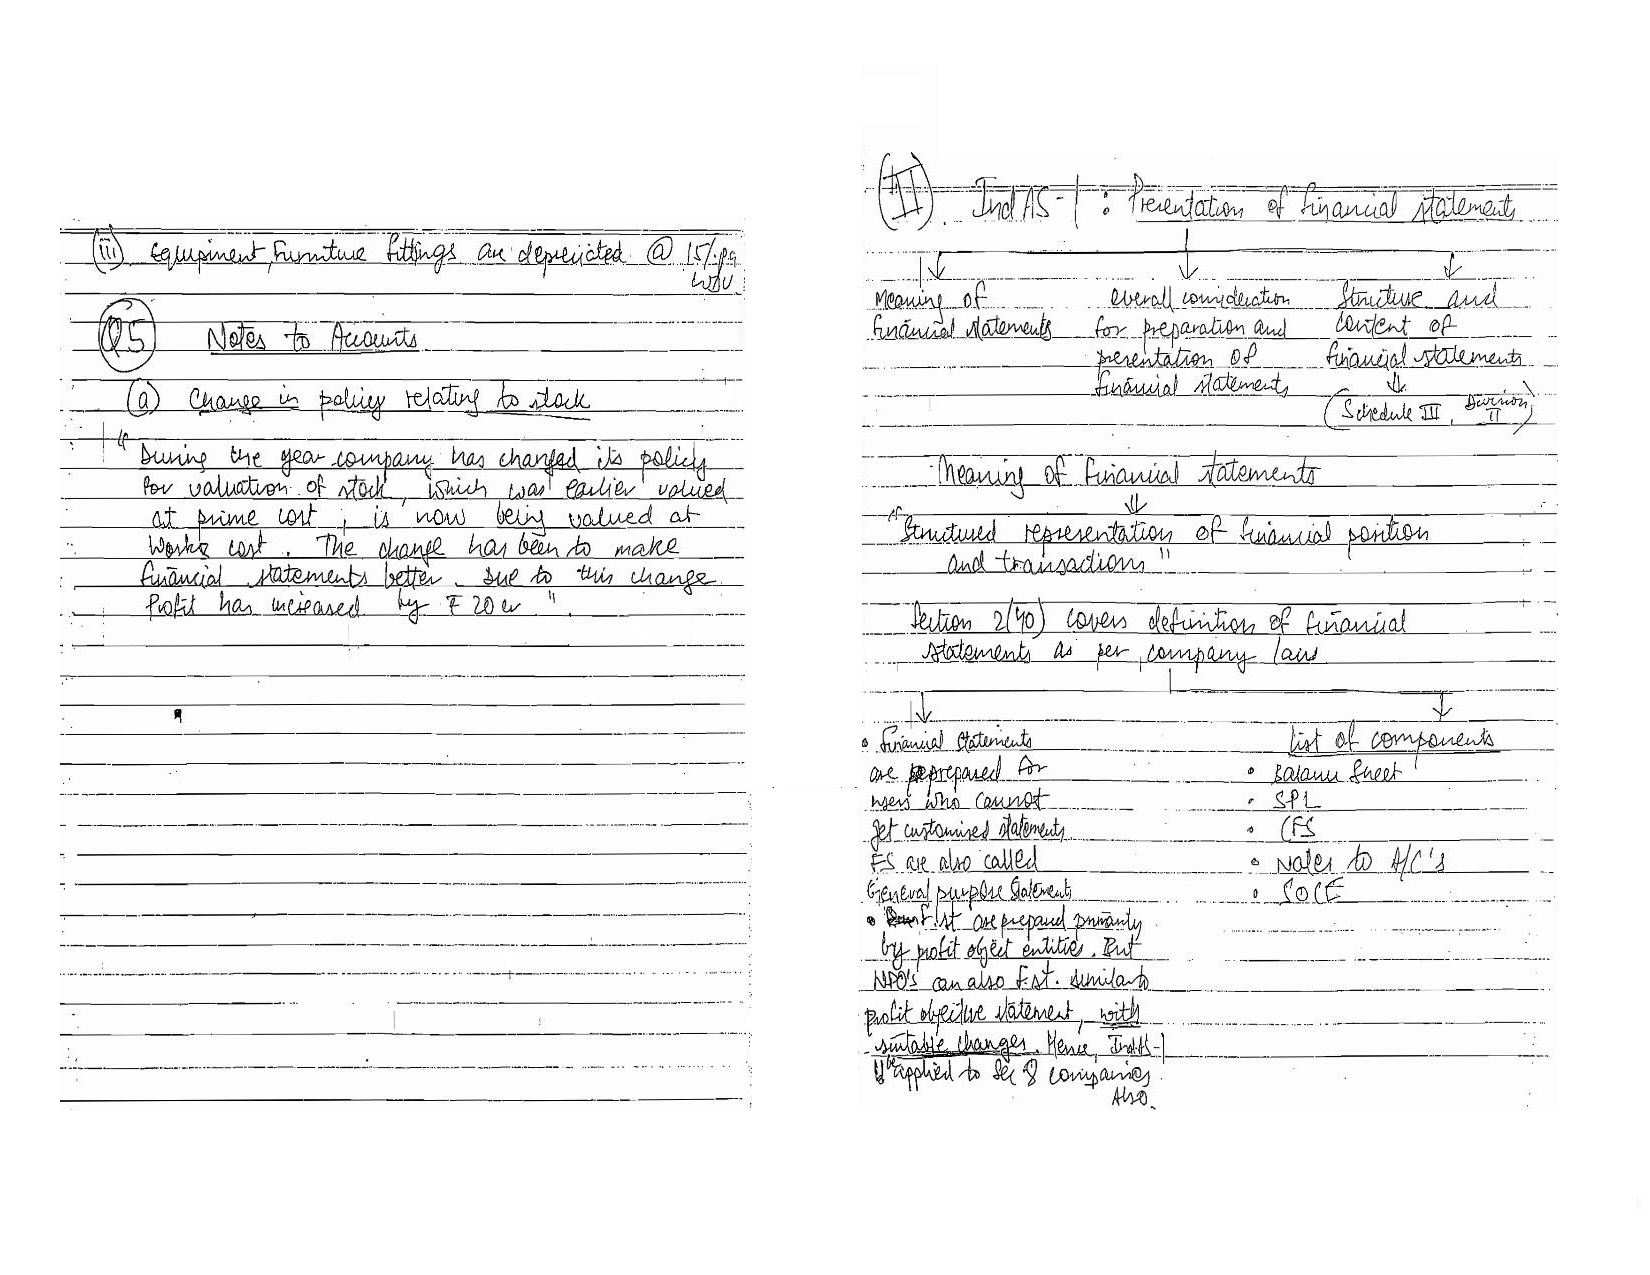 (iii) Equipment, Furniture fittings are depreciated @ 15%.pa
WDV
Q5 Notes to Accounts
(a) Change in policy relating to stock
" During the year company has changed its policy
for valuation of stock, which was earlier valued
at prime cost, is now being valued at
Works cost. The change has been to make
financial statements better. Due to this change
Profit has increased by ₹ 20 cr ".
(II) Ind AS-1 : Presentation of financial statements
Meaning of
financial statements
overall consideration
for preparation and
presentation of
financial statements
Structure and
content of
financial statements
(Schedule III, Division
II)
Meaning of Financial statements
"Structured representation of financial position
and transactions"
Section 2(40) covers definition of financial
statements as per company law
• Financial Statements
are prepared for
users who cannot
get customised statements
FS are also called
General purpose Statements
• F.st are prepared primarily
by profit object entities. But
NPO's can also F.st. similar to
profit objective statement, with
suitable changes. Hence, Ind AS-1
be applied to Sec 8 companies
Also.
List of components
• Balance Sheet
• SPL
• CFS
• Notes to A/C's
• SOCE